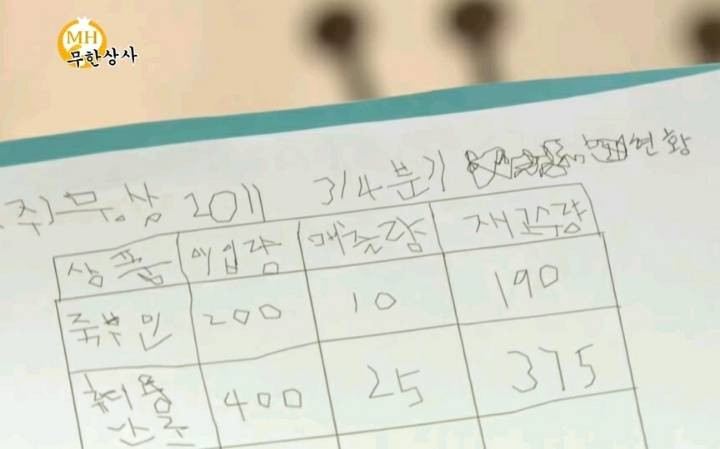 MH
무한상사
주)무.상 2011 3/4분기 현황
상품 매입량 매출량 재고수량
죽부인 200 10 190
휴대용 400 25 375
난로